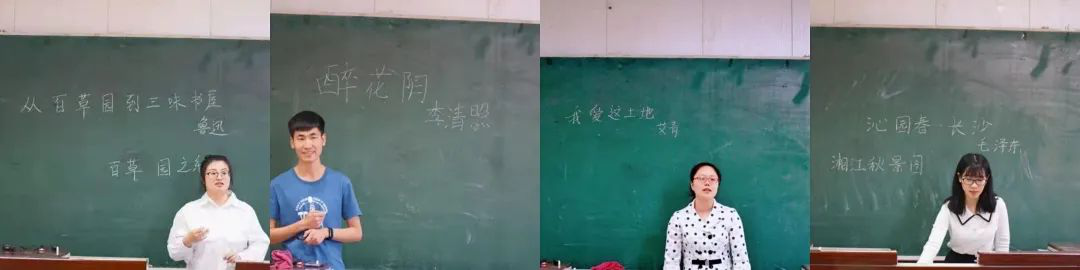 从百草园到三味书屋
鲁迅
百草园之
醉花阴
李清照
我爱这土地
艾青
沁园春·长沙
毛泽东
湘江秋景图